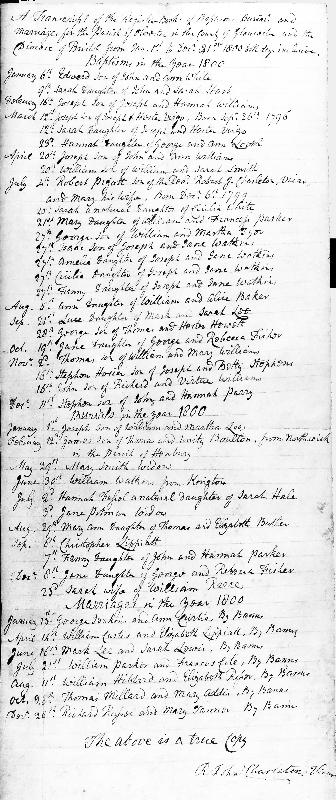 A Transcript of the Register Book of Baptisms Burials and
marriages for the Parish of Olveston in the County of Gloucester and the
Diocese of Bristol from Jan. 1st to Decr 31st 1800 both days inclusive.
Baptisms in the Year 1800
January 6th Edward Son of John and Ann White
9th Sarah Daughter of John and Sarah
February 16th Joseph Son of Joseph and Hannah Williams
March 12th Joseph Son of Joseph & Hester Virgo, Born Sept. 26th 1796
12th Sarah Daughter of Joseph and Hester Virgo
23d Hannah Daughter of George and Ann
April 20th Joseph Son of John and Ann Williams
20th William Son of William and Sarah Smith
July 4th Robert Pigott Son of the Revd Robert J. Charleton, Vicar
and Mary his Wife, Born Decr 6th 1799
20th Sarah a natural Daughter of Cecilia White
21st Mary Daughter of William and Frances Parker
27th George Son of William and Martha
27th Isaac Son of Joseph and Jane Watkins
27th Amelia Daughter of Joseph and Jane Watkins
27th Cecilia Daughter of Joseph and Jane Watkins
27th Fanny Daughter of Joseph and Jane Watkins
Aug. 3d Ann Daughter of William and Alice Baker
Sep. 21st Luce Daughter of Mark and Sarah Lee
28th George Son of Thomas and Hester Howell
Oct. 19th Jane Daughter of George and Rebecca Fisher
Novr 2d Thomas Son of William and Mary Williams
16th Stephen Hosier Son of Joseph and Betty Stephens
16th John Son of Richard and Virtue Williams
Decr 11th Stephen Son of John and Hannah Parry
Burials in the year 1800
January 1st Joseph Son of William and Martha
February 12th James Son of Thomas and Boulton, from Northwick
in the Parish of Henbury
May 29th Mary Smith Widow
June 30th William Walker from Kington
July 2d Hannah a natural Daughter of Sarah Hale
3d Jane Widow
Aug. 20th Mary Ann Daughter of Thomas and Elizabeth Butler
Sep. 6th Christopher Lippiatt
7th Fanny Daughter of John and Hannah Parker
Decr 6th Jane Daughter of George and Rebecca Fisher
25th Sarah Wife of William
Marriages in the Year 1800
January 13th George Jenkins and Ann Curtis, By Banns
April 14th William Curtis and Elizabeth Lippiatt, By Banns
June 16th Mark Lee and Sarah Lewis, By Banns
July 21st William Parker and Frances, By Banns
Aug. 11th William Hibbard and Elizabeth, By Banns
Oct. Thomas Millard and Mary Addis, By Banns
Decr 26th Richard and Mary Tanner By Banns
The above is a true Copy
R. John Charleton, Vicar